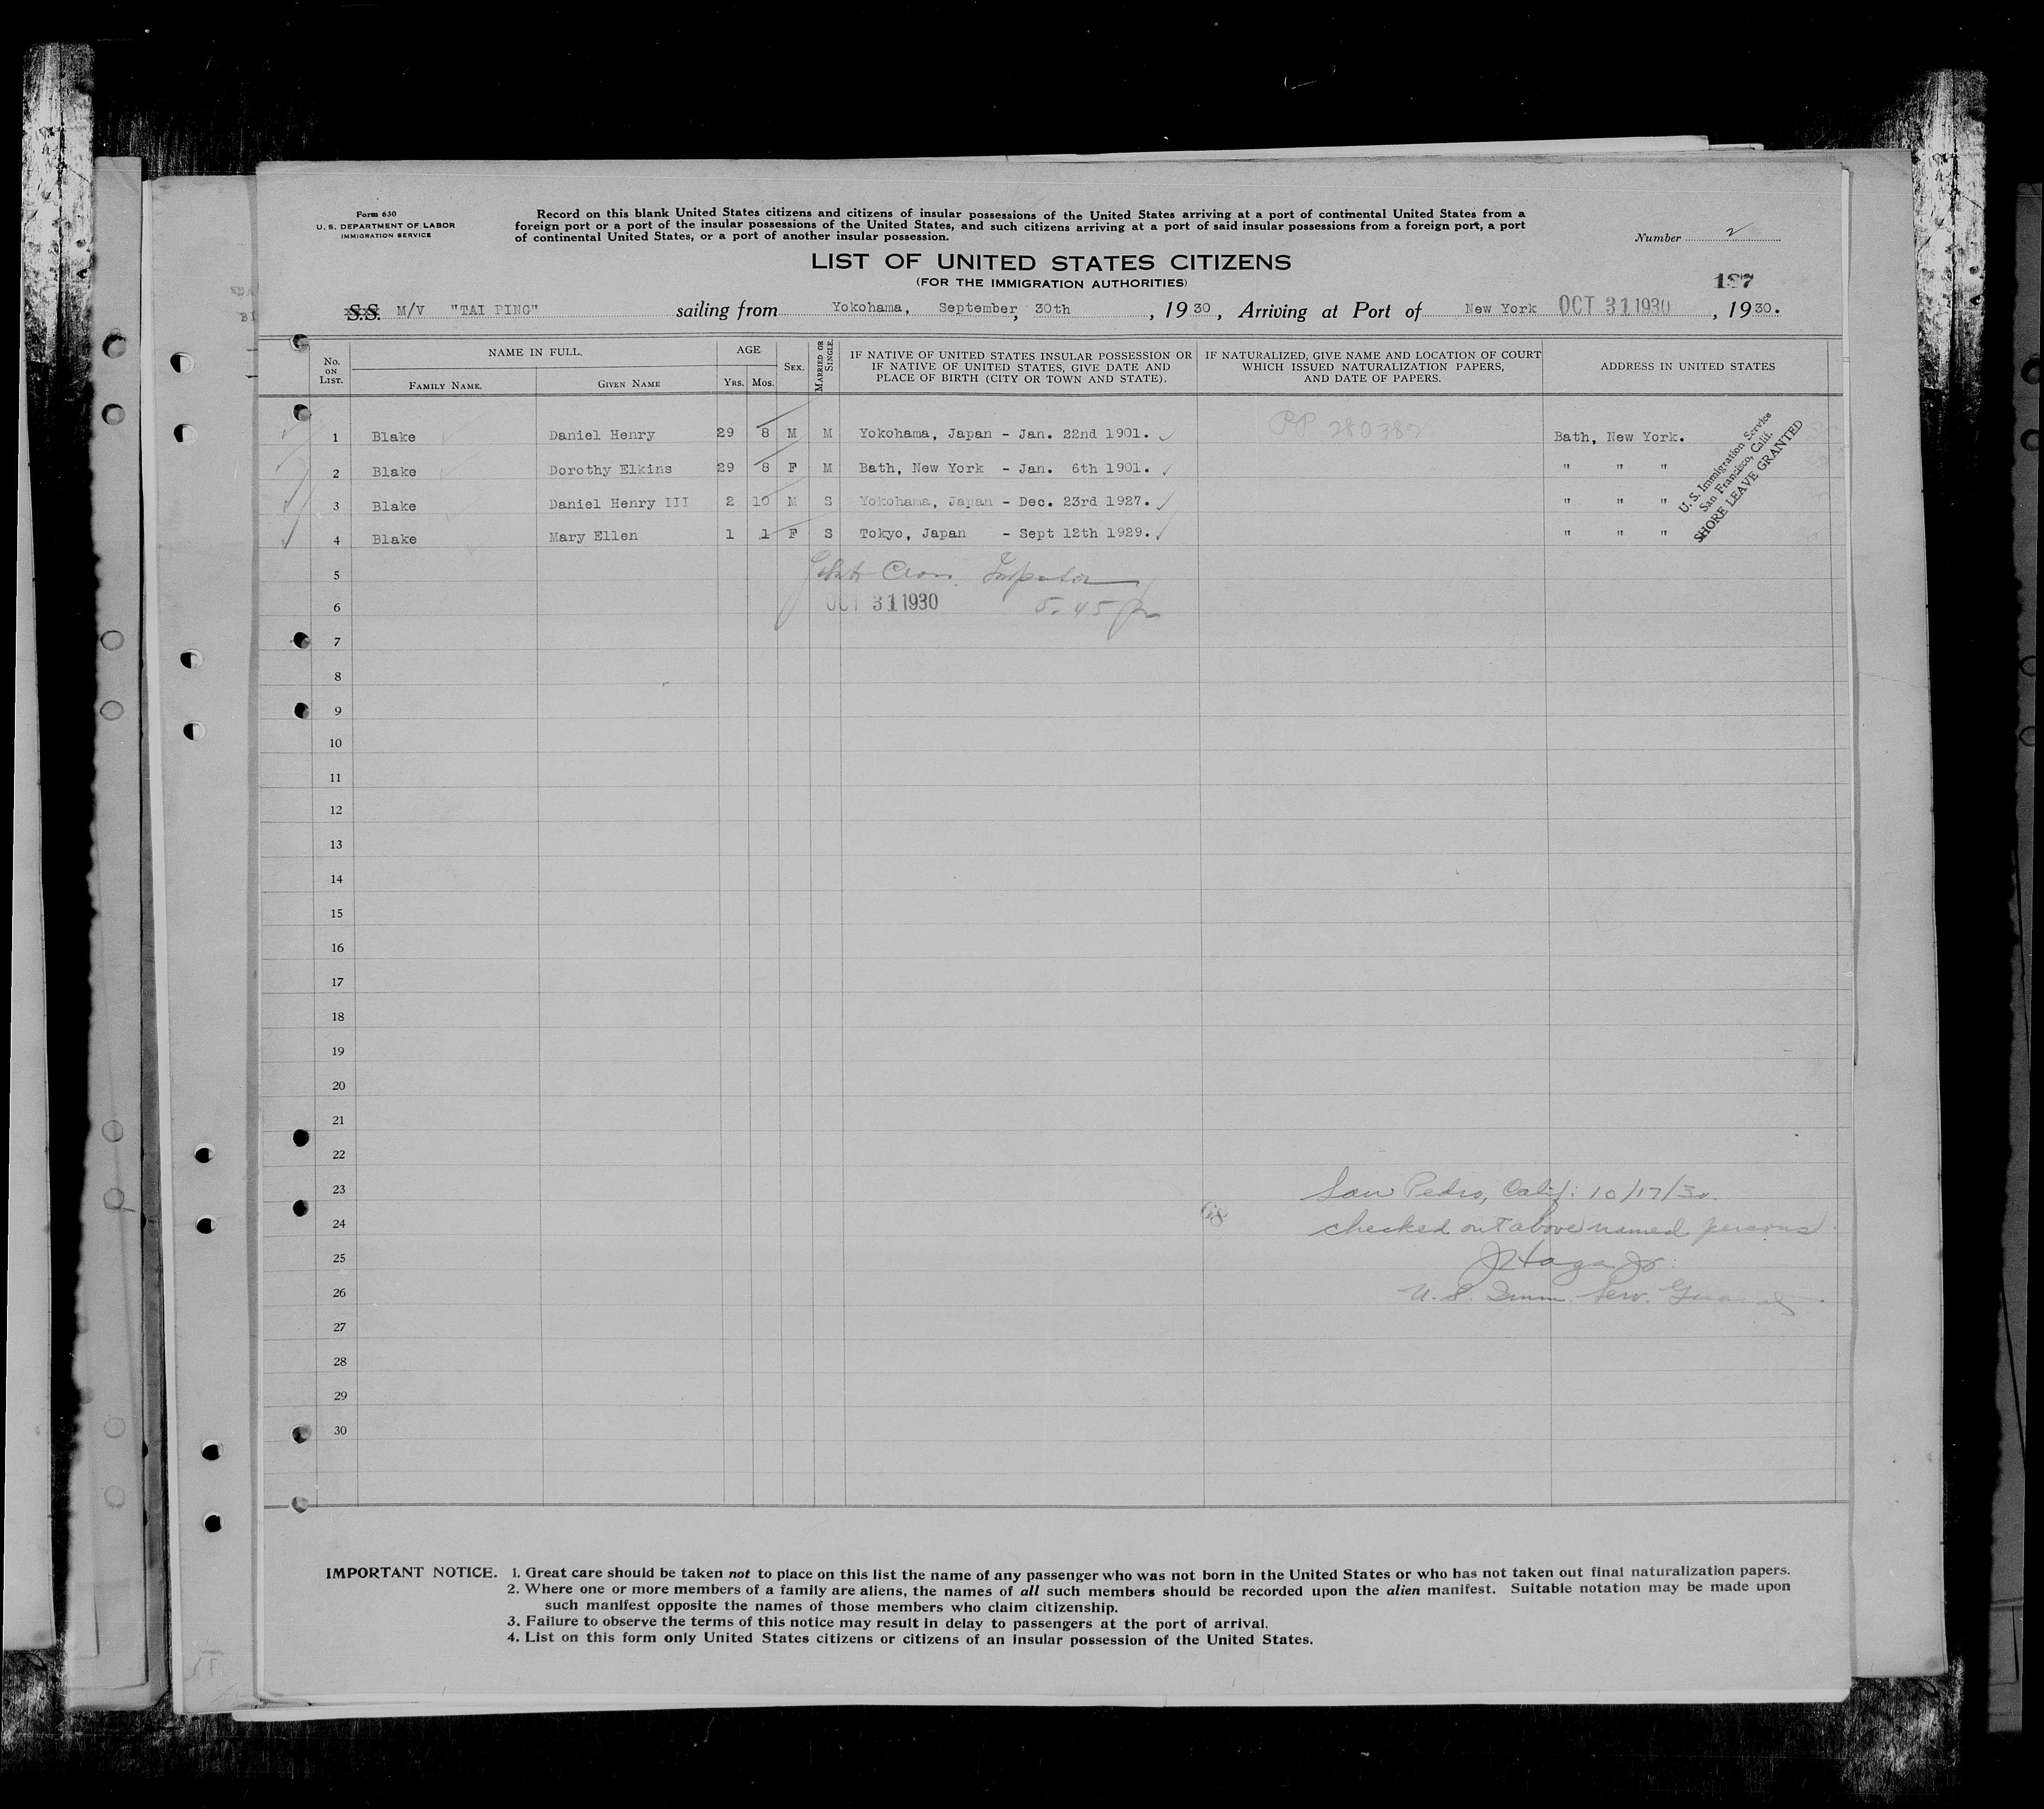 Form 630
U. S. DEPARTMENT OF LABOR
IMMIGRATION SERVICE
Record on this blank United States citizens and citizens of insular possessions of the United States arriving at a port of continental United States from a
foreign port or a port of the insular possessions of the United States, and such citizens arriving at a port of said insular possessions from a foreign port, a port
of continental United States, or a port of another insular possession.
Number 2
LIST OF UNITED STATES CITIZENS
(FOR THE IMMIGRATION AUTHORITIES)
S.S. M/V "TAI PING" sailing from Yokohama, September, 30th, 1930, Arriving at Port of New York OCT 31 1930, 1930.
No. ON LIST. NAME IN FULL. AGE SEX. MARRIED OR SINGLE. IF NATIVE OF UNITED STATES INSULAR POSSESSION OR IF NATIVE OF UNITED STATES, GIVE DATE AND PLACE OF BIRTH (CITY OR TOWN AND STATE). IF NATURALIZED, GIVE NAME AND LOCATION OF COURT WHICH ISSUED NATURALIZATION PAPERS, AND DATE OF PAPERS. ADDRESS IN UNITED STATES
FAMILY NAME. GIVEN NAME YRS. MOS.
1 Blake Daniel Henry 29 8 M M Yokohama, Japan - Jan. 22nd 1901. PP 280382 Bath, New York.
2 Blake Dorothy Elkins 29 8 F M Bath, New York - Jan. 6th 1901. " " "
3 Blake Daniel Henry III 2 10 M S Yokohama, Japan - Dec. 23rd 1927. " " "
4 Blake Mary Ellen 1 1 F S Tokyo, Japan - Sept 12th 1929. " " "
U. S. Immigration Service
San Francisco, Calif.
SHORE LEAVE GRANTED
5 Inspector
6 OCT 31 1930 5.45 pm
7
8
9
10
11
12
13
14
15
16
17
18
19
20
21
22
23 San Pedro, Calif: 10/17/30.
24 68 checked out above named persons.
25
26 U. S. Imm. Serv. Guard.
27
28
29
30
IMPORTANT NOTICE. 1. Great care should be taken not to place on this list the name of any passenger who was not born in the United States or who has not taken out final naturalization papers.
2. Where one or more members of a family are aliens, the names of all such members should be recorded upon the alien manifest. Suitable notation may be made upon
such manifest opposite the names of those members who claim citizenship.
3. Failure to observe the terms of this notice may result in delay to passengers at the port of arrival.
4. List on this form only United States citizens or citizens of an insular possession of the United States.